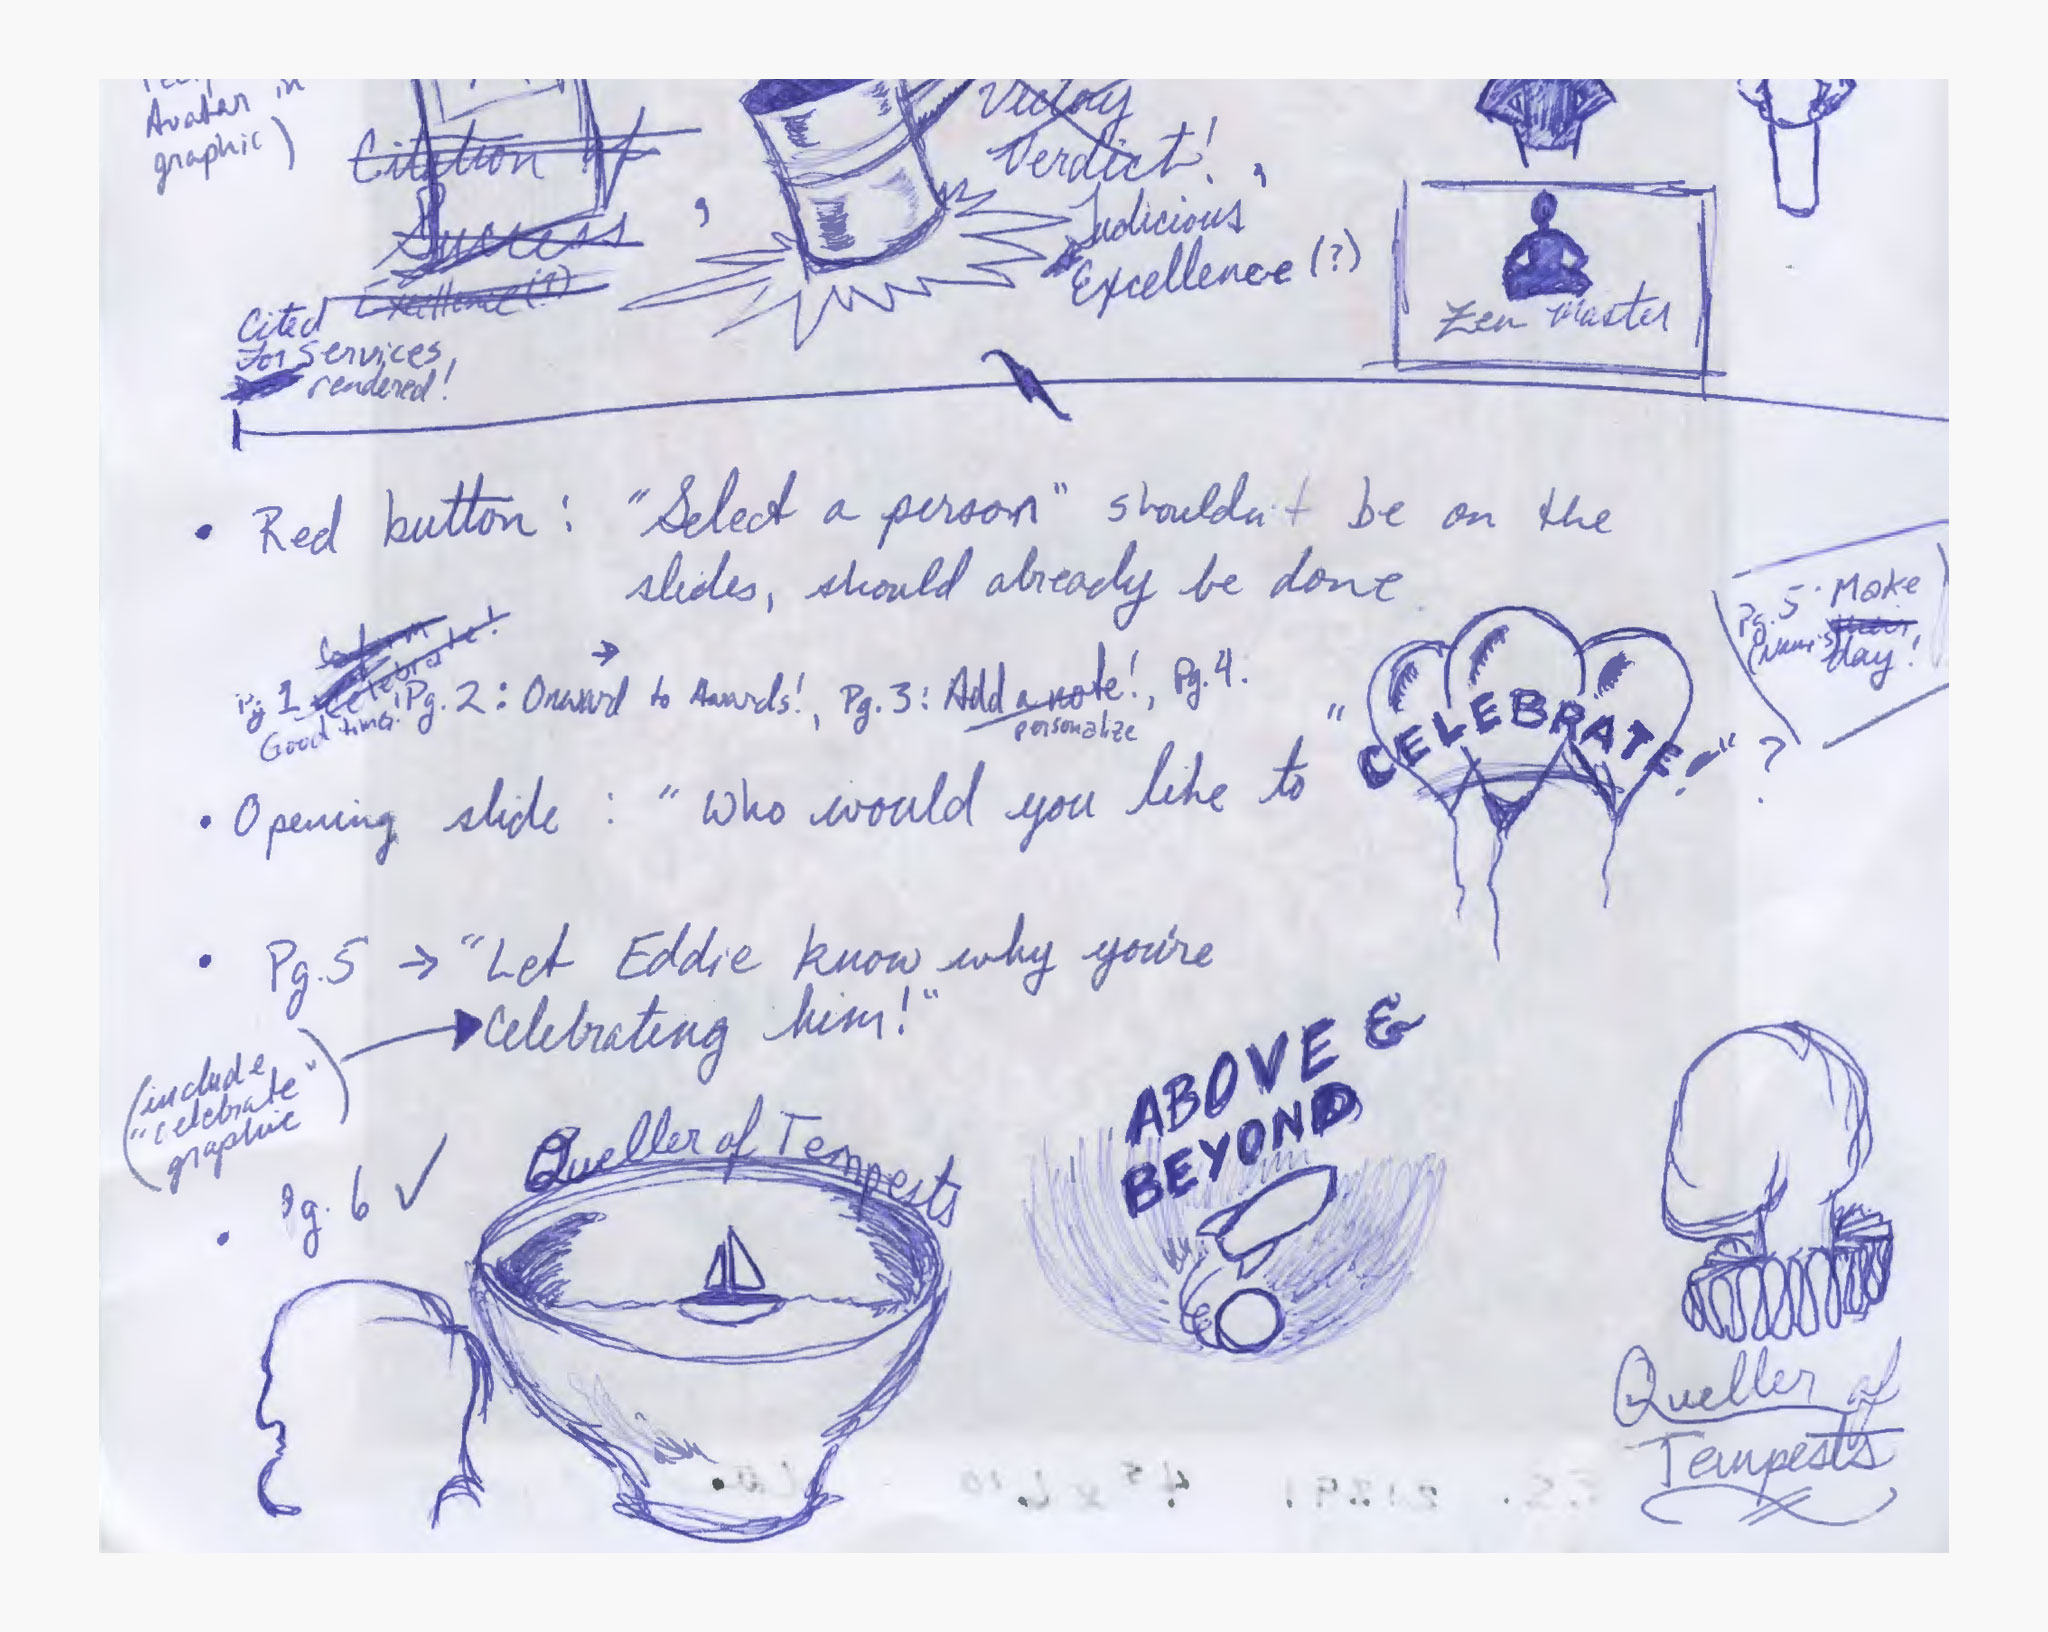 Avatar in
graphic)
Citation of
Success
Excellence(?)
Cited
For services
rendered!
,
Victory
Verdict! ,
Judicious
Excellence (?)
Zen Master
• Red button: "Select a person" shouldn't be on the
slides, should already be done.
Pg 1 Celebrate!
Good times.
Pg. 2: Onward → to Awards!, Pg. 3: Add a note!, Pg. 4.
personalize
Pg. 5: Make
day!
• Opening slide: "Who would you like to "CELEBRATE!"?
• Pg. 5 → "Let Eddie know why you're
celebrating him!"
(include
"celebrate"
graphic
• Pg. 6 ✓
Queller of Tempests
ABOVE &
BEYOND
Queller of
Tempests